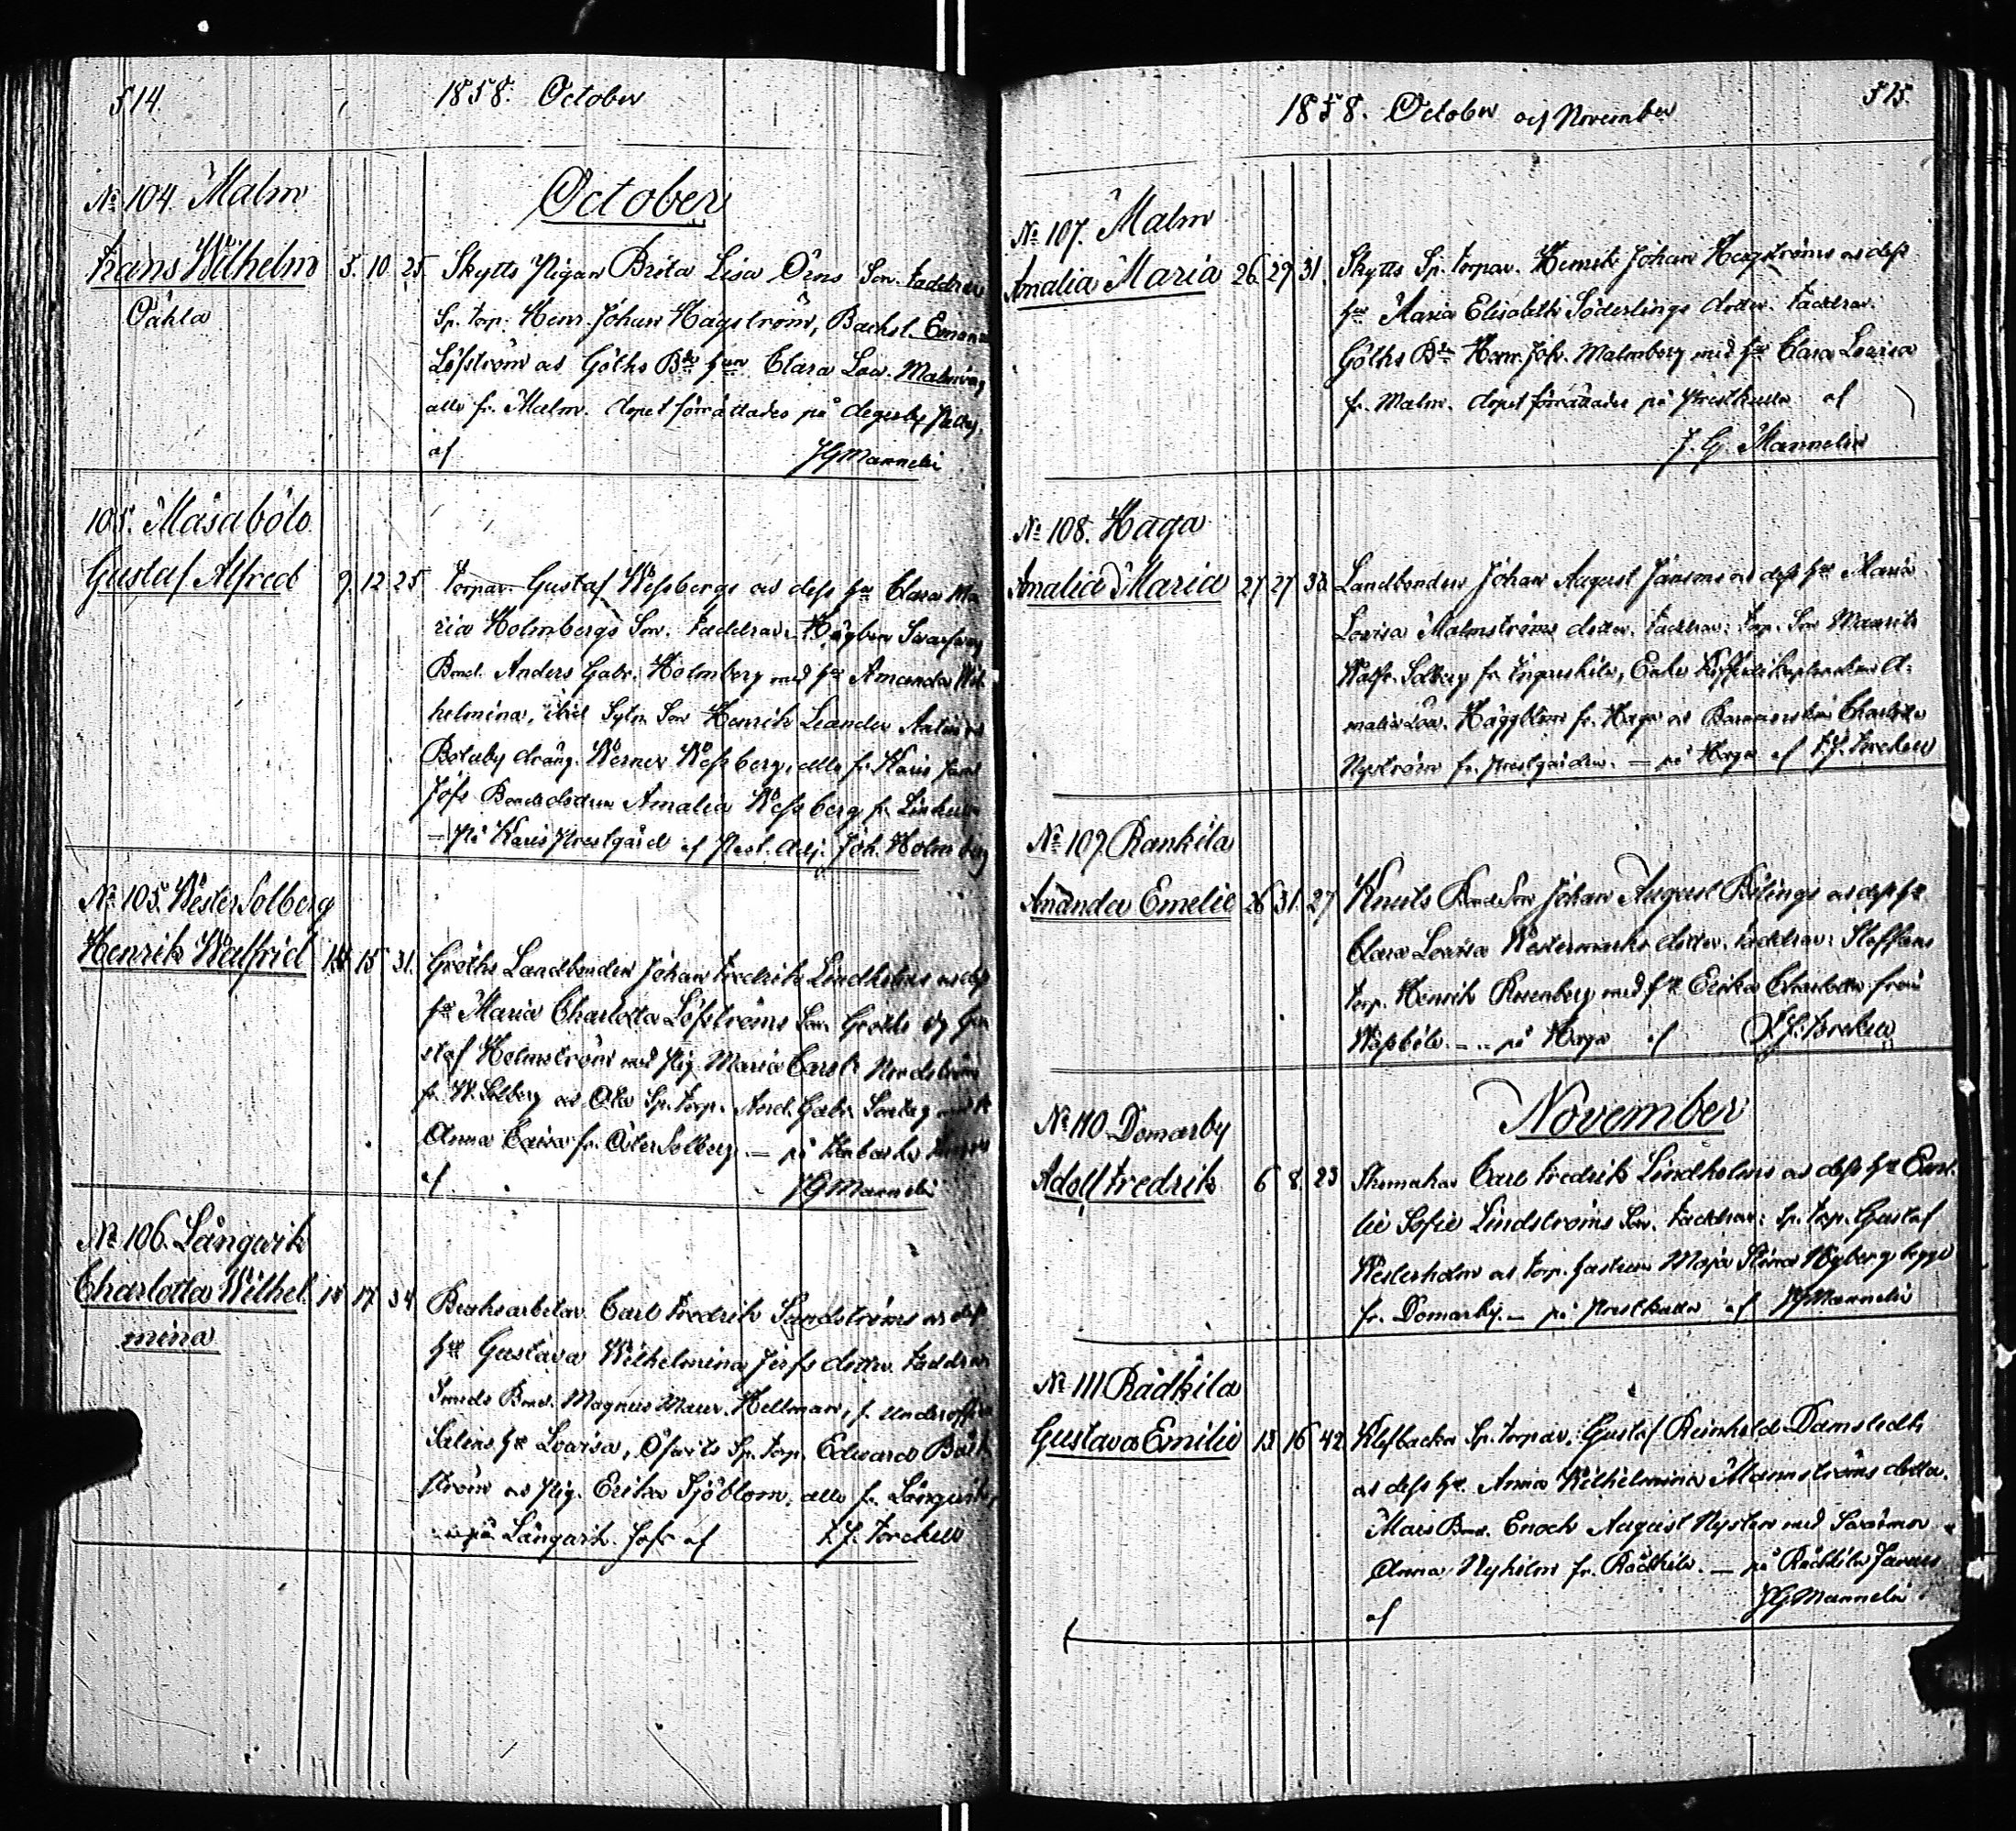 514.
1858. October
October
No 104. Malm
Frans Wilhelm 5. 10. 25. Skytts Pigan Brita Lisa Örns Son. Faddrar
Oäkta
Sp. torp. Henr. Johan Hagström, Bachsl.
Löfström och Göths Bde Hun Clara Lov. Malmberg
alla fr. Malm. dopet förrättades på Degerby
af JGMannelin
105. Masabölo
Gustaf Alfred 9. 12. 25 Torpar. Gustaf Wessbergs och dess hu Clara Ma
ria Holmbergs Son. Faddrar:
Bond. Anders Gabr. Holmberg med hu Amanda Wil
helmina, Sytn. Son Henrik Leander
Botaby dräng. Werner Wessberg, alla fr. Karis samt
Jöfs Bondedottern Amalia Wessberg fr.
— På Karis Prestgård af Past. Adj. Joh. Holmberg
No 105. Wester Solberg
Henrik Walfrid 14 15 31. Gröths Landbonden Johan Fredrik Lindholms och dess
hu Maria Charlotta Löfströms Son. Gröths Gu
staf Holmström med Pig. Maria Carol. Nordström
fr. W. Solberg och Sp. torp. And. Gabr. med
Anna Caisa fr. Öster Solberg. — på
af JGMannelin
No 106. Långwik
Charlotta Wilhel 15 17 34 Bruksarbetar. Carl Fredrik Sandströms och dess
mina
hu Gustava Wilhelmina dotter. Faddrar
Smeds Bond. Magnus Maur. Hellman, f. Underoffic
hu Lovisa, Sp. torp. Edward
ström och Pig. Erika Sjöblom, alla fr. Långwik,
på Långwik. af F. J. Forchell
1858. October och November
515.
No 107. Malm
Amalia Maria 26. 29. 31. Skytts Sp. torpar. Henrik Johan Hagströms och dess
hu Maria Elisabeth Söderlings dotter. Faddrar.
Göths Bde Henr. Joh. Malmberg med hu Clara Lovisa
fr. Malm. dopet förrättades på af
J. G. Mannelin
No 108. Haga
Amalia Maria 27 27 33. Landbonden Johan August Jansons och dess hu Maria
Lovisa Malmströms dotter. Faddrar: Torp. Son Maurits
Walfr. Solberg fr. Ingvaskila, Enke
malia Lov. Häggblom fr. Haga och Barnmorskan Charlotta
Nyström fr. Prestgården. — på Haga af F. J. Forchell
No 109. Rankila
Amanda Emelie 26 31. 27 Knuts BondeSon Johan August Bilings och dess hu
Clara Lovisa Westermarks dotter. Faddrar: Staffans
torp. Henrik Rosenberg med hu Erika Charlotta från
Wassböle — på Haga af F. J. Forchell
November
No 110. Domarby
Adolf Fredrik 6 8. 23 Skomakar Carl Fredrik Lindholms och dess hu Emi
lie Sofie Lindströms Son. Faddrar: Sp. torp. Gustaf
Westerholm och torp. hustrun Maja Stina Nyberg begge
fr. Domarby. — på af JGMannelin
No 111 Rådkila
Gustava Emilie 13 16 42 Klefbacka Sp. torpar. Gustaf Reinhold Damstedts
och dess hu. Anna Wilhelmina Mannströms dotter.
Mars Bond. Enoch August Nysten med Svärmor
Anna Nyholm fr. Rådkila. — på Rådkila
af JGMannelin